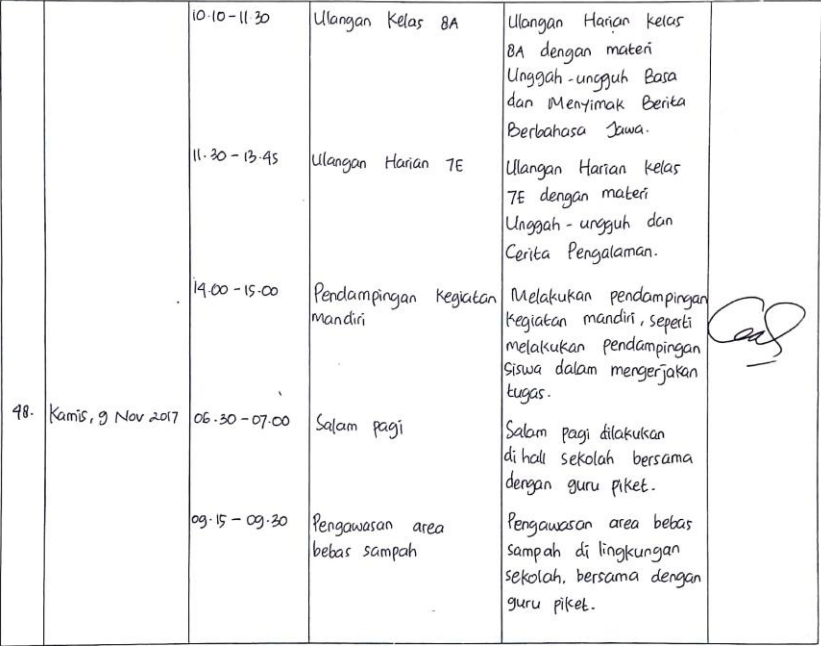 10.10 - 11.30 Ulangan Kelas 8A Ulangan Harian kelas
8A dengan materi
Unggah-ungguh Basa
dan Menyimak Berita
Berbahasa Jawa.
11.30 - 13.45 Ulangan Harian 7E Ulangan Harian kelas
7E dengan materi
Unggah-ungguh dan
Cerita Pengalaman.
14.00 - 15.00 Pendampingan Kegiatan Melakukan pendampingan
Mandiri kegiatan mandiri, seperti
melakukan pendampingan
siswa dalam mengerjakan
tugas.
48. Kamis, 9 Nov 2017 06.30 - 07.00 Salam pagi Salam pagi dilakukan
di hall sekolah bersama
dengan guru piket.
09.15 - 09.30 Pengawasan area Pengawasan area bebas
bebas sampah sampah di lingkungan
sekolah, bersama dengan
guru piket.